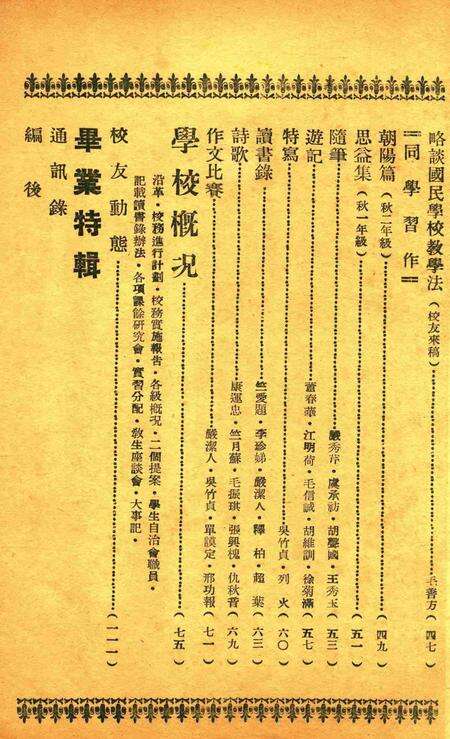 略談國民學校教學法（校友來稿）……毛善方（四七）
＝同學習作＝
朝陽篇（秋二年級）……（四九）
思益集（秋一年級）……（五一）
隨筆……嚴秀芹・虞承訪・胡聲國・王秀玉（五三）
遊記……蕭春華・江明荷・毛信誠・胡維訓・徐菊滿（五七）
特寫……吳竹貞・列火（六〇）
讀書錄……竺愛題・李珍娣・嚴潔人・釋柏・超葉（六三）
詩歌……康運忠・竺月蘇・毛振琪・張興槐・仇秋香（六九）
作文比賽……嚴潔人・吳竹貞・單謨定・邢功報（七一）
學校概况……（七五）
沿革・校務進行計劃・校務實施報告・各級概况・二個提案・學生自治會職員・
記載讀書錄辦法・各項課餘研究會・實習分配・敎生座談會・大事記・
校友動態……（一一一）
畢業特輯
通訊錄
編後